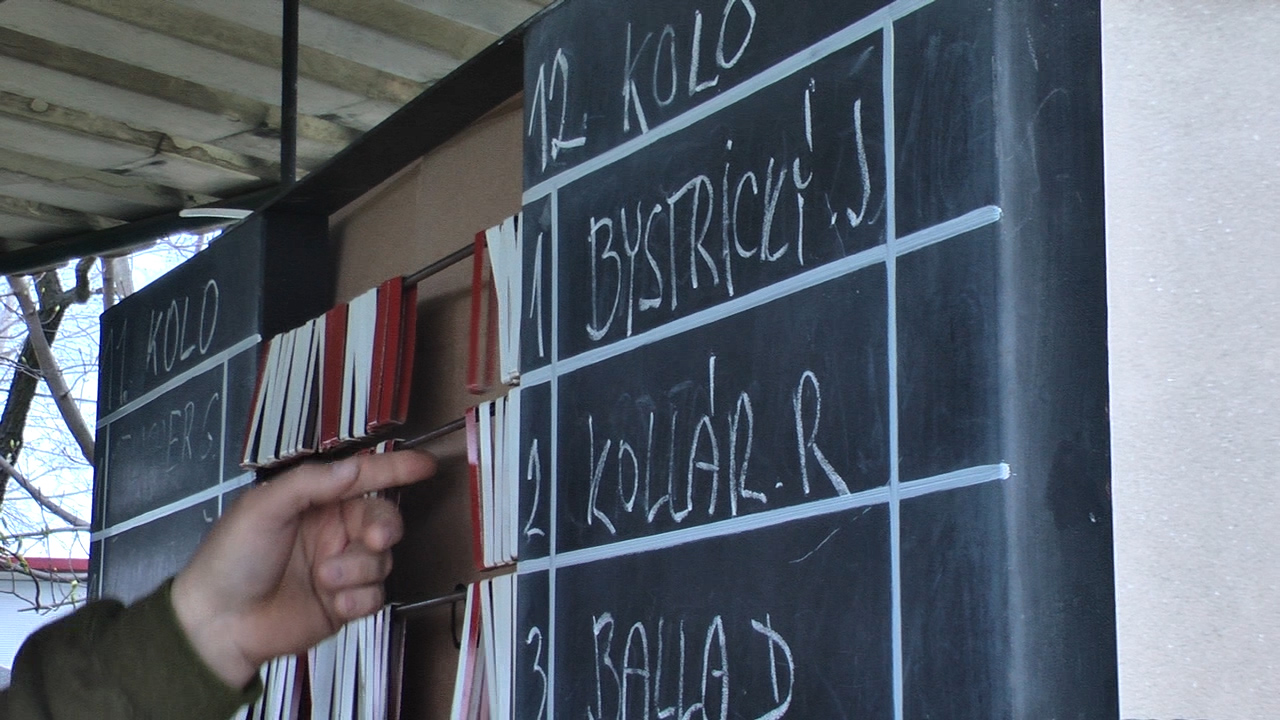 12. KOLO
1 BYSTRICKÍ.J
2 KOLLÁR.R
3 BALLA D
1. KOLO